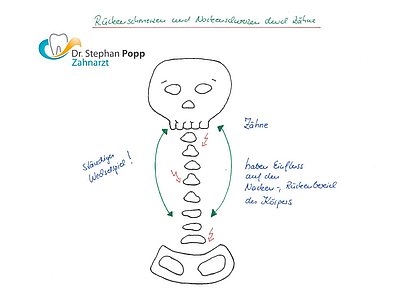 Rückenschmerzen und Nackenschmerzen durch Zähne
Dr. Stephan Popp
Zahnarzt
Zähne
Ständiges
Wechselspiel!
haben Einfluss
auf den
Nacken-, Rückenbereich
des Körpers